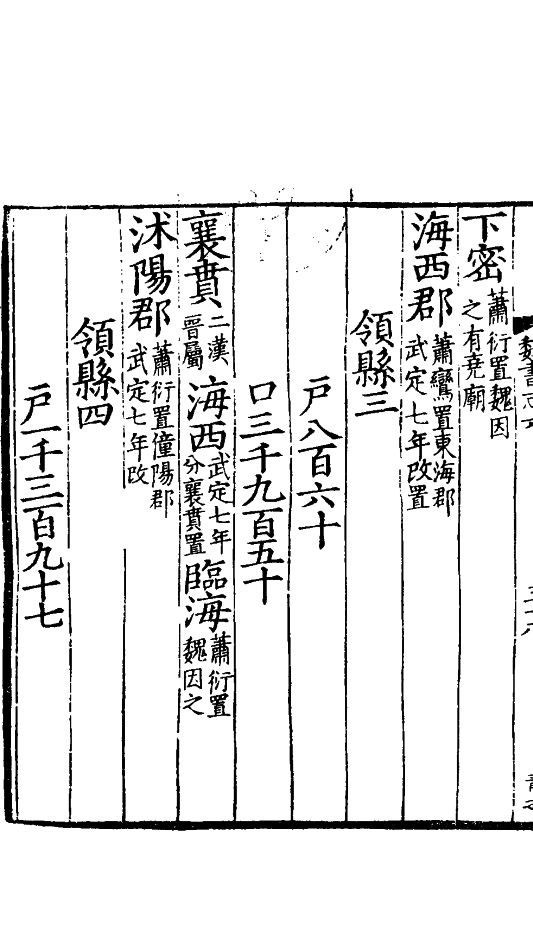 下密蕭衍置魏因之有堯廟
海西郡蕭鸞置東海郡武定七年改置
領縣三
戸八百六十
口三千九百五十
襄賁二漢晉屬海西武定七年分襄賁置臨海蕭衍置魏因之
沭陽郡蕭衍置僮陽郡武定七年改
領縣四
戸一千三百九十七